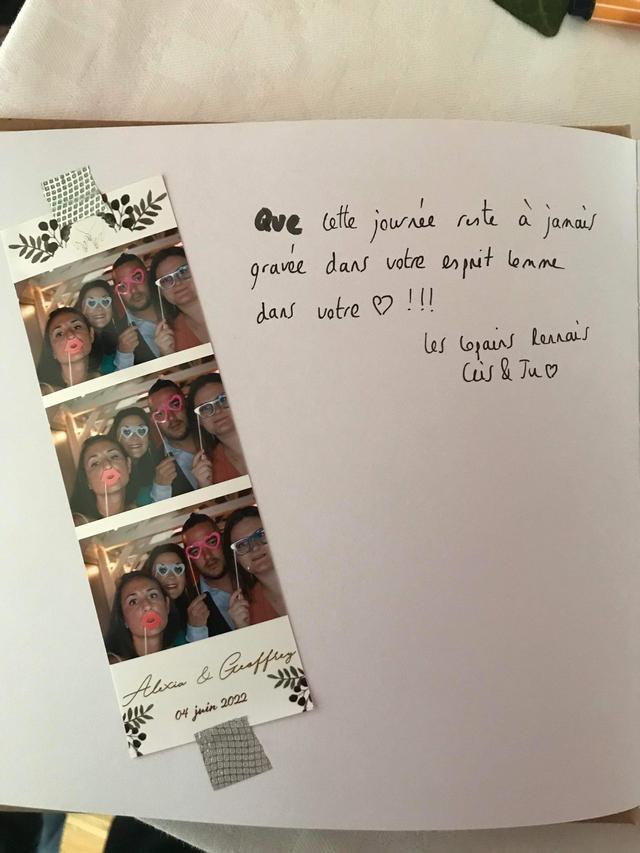 Que cette journée reste à jamais
gravée dans votre esprit comme
dans votre ♡ !!!
Les copains Rennais
Céis & Ju ♡
Alexia & Geoffrey
04 juin 2022